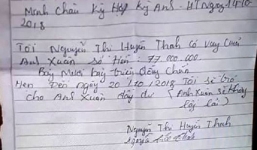 Minh Châu Kỳ Hợp Kỳ Anh - HT Ngày 14-10
2018
Tôi Nguyễn Thị Huyền Thanh có vay của
Anh Xuân số tiền 77.000.000
Bảy Mươi bảy triệu đồng chẵn
Hẹn Đến ngày 20/10/2018 Tôi sẽ trả
cho Anh Xuân đầy đủ (Anh Xuân sẽ
lấy lãi)
Nguyễn Thị Huyền Thanh